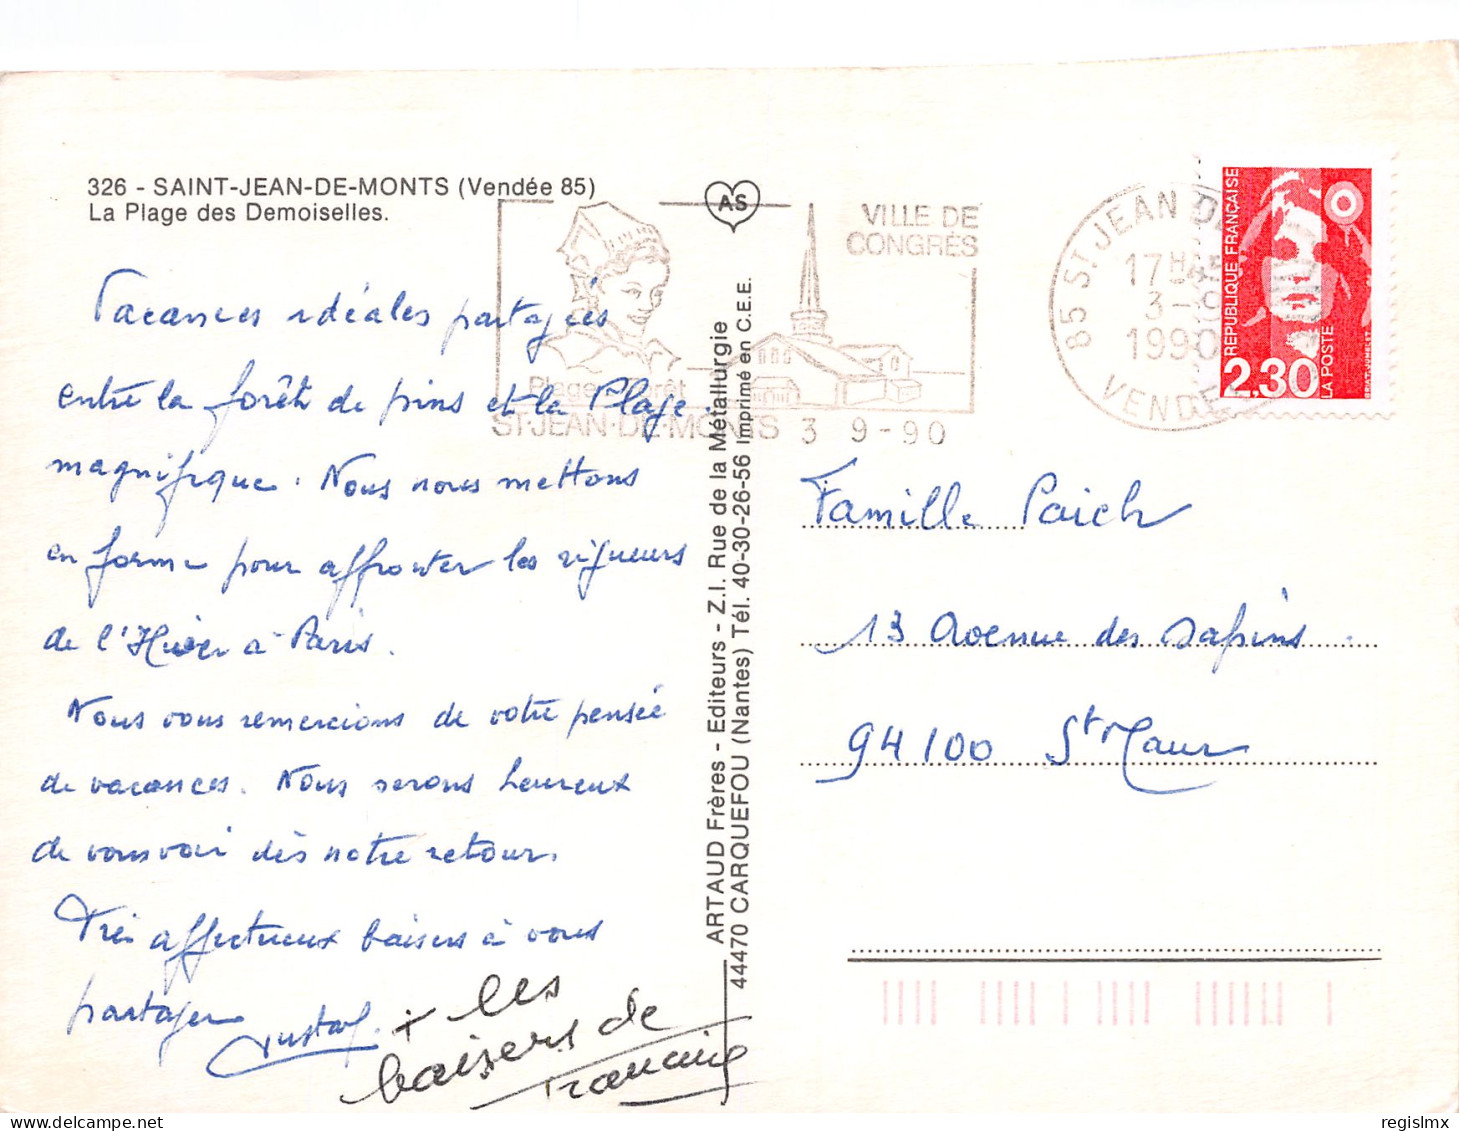 326 - SAINT-JEAN-DE-MONTS (Vendée 85)
La Plage des Demoiselles.
AS
VILLE DE
CONGRÈS
Plage Forêt
ST-JEAN-DE-MONTS 3 9-90
85 ST JEAN DE
17H45
3-9
1990
VENDEE
REPUBLIQUE FRANÇAISE
LA POSTE
2,30
Vacances idéales partagées
entre la forêt de pins et la Plage
magnifique. Nous nous mettons
en forme pour affronter les rigueurs
de l'Hiver à Paris.
Nous vous remercions de votre pensée
de vacances. Nous serons heureux
de vous voir dès notre retour.
Très affectueux baisers à vous
partager
Gustave
+ les
baisers de
Francine
ARTAUD Frères - Editeurs - Z.I. Rue de la Métallurgie
44470 CARQUEFOU (Nantes) Tél. 40-30-26-56 Imprimé en C.E.E.
Famille Paich
13 Avenue des Sapins.
94100 St Maur
regislmx